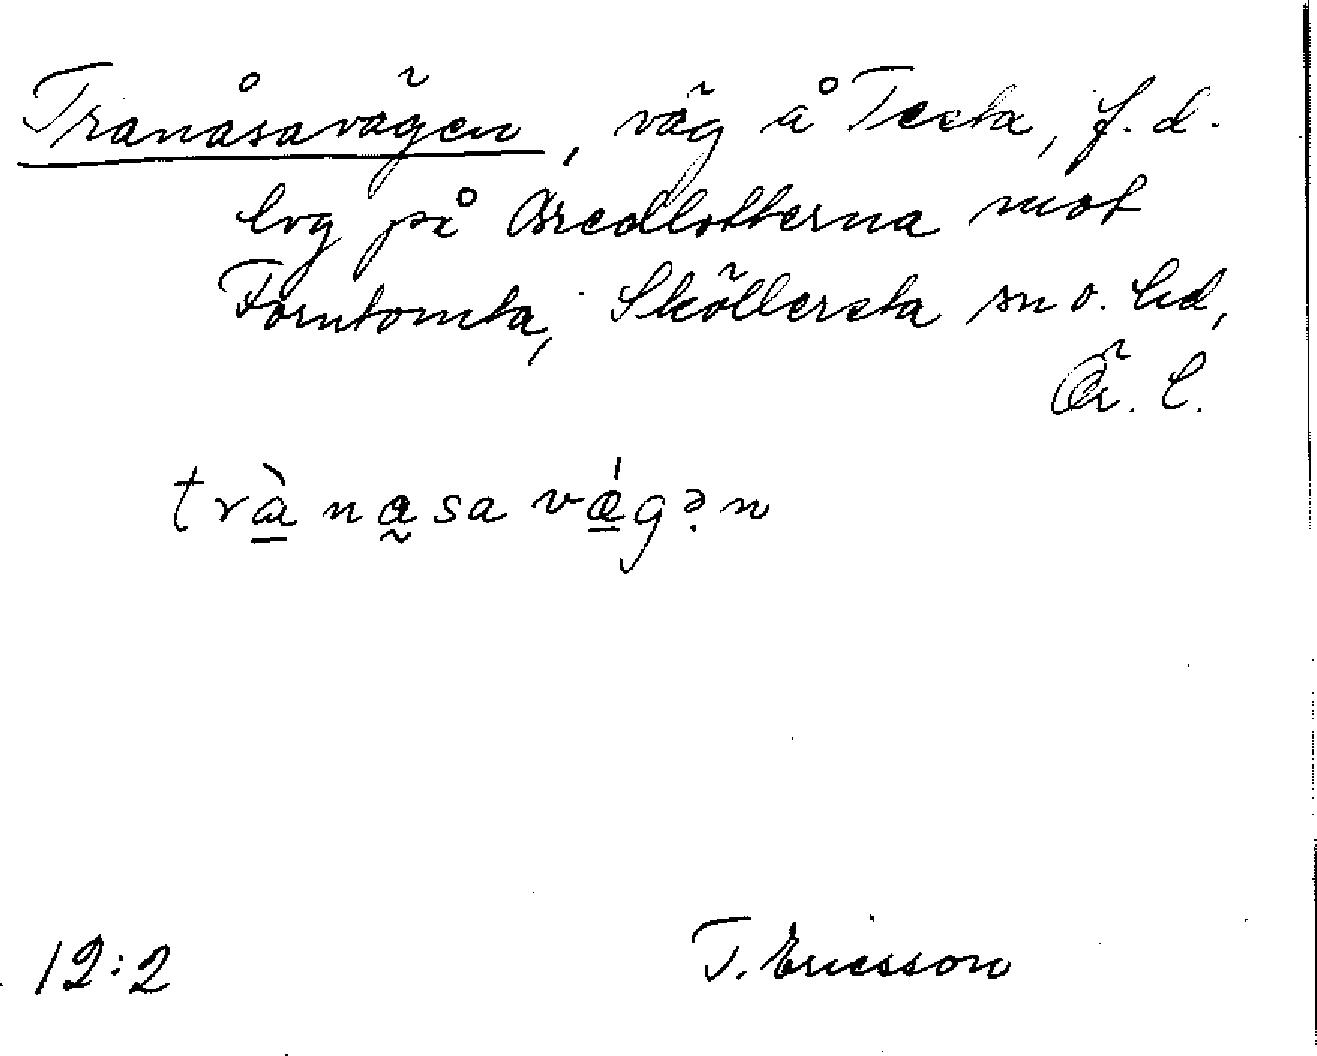 Tranåsavägen, väg å Testa, f.d.
lvg på Bredlotterna mot
Forntomta, Sköllersta sn o. hd,
Ör. l.
trànasa vǽgən
12:2
T. Ericsson